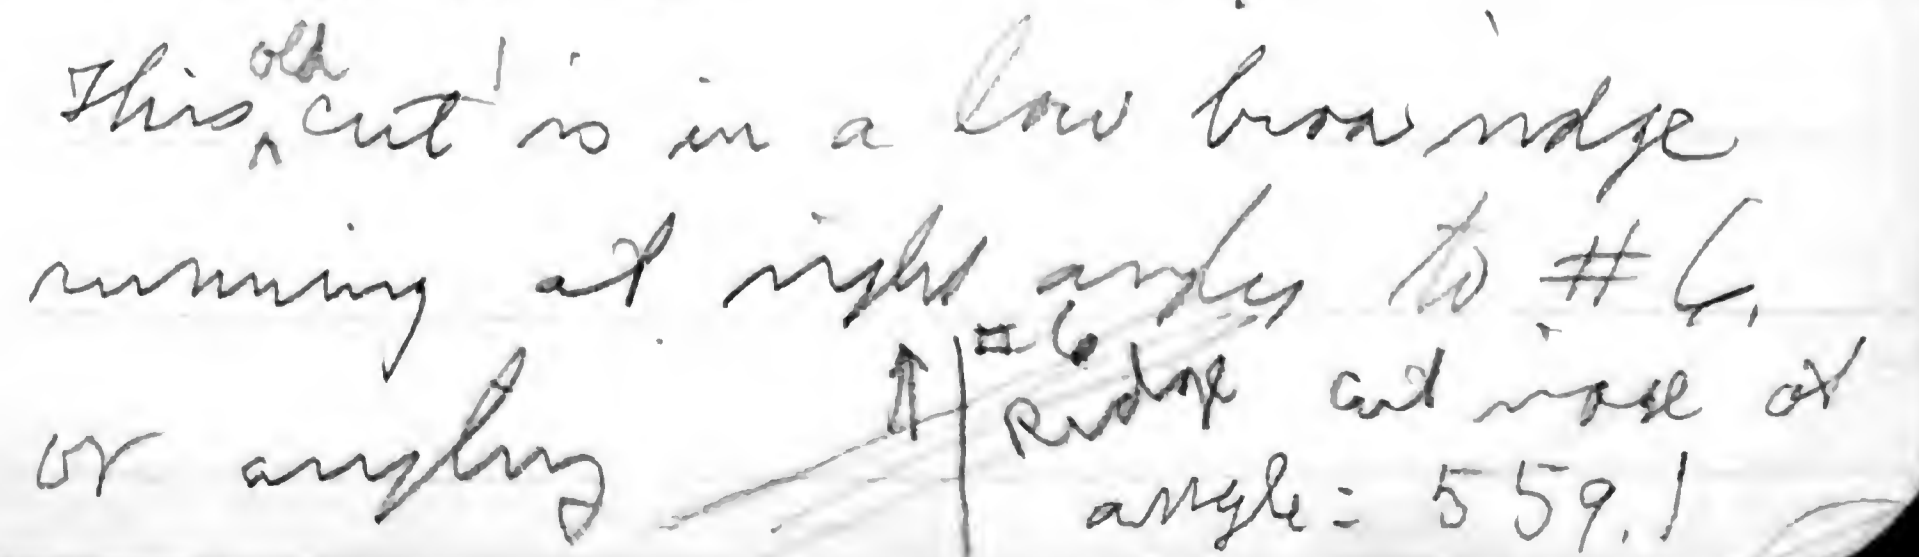 This old cut is in a low broa ridge
running at right angles to # 6,
or angling
#6
Ridge cut nose at
angle = 559.1